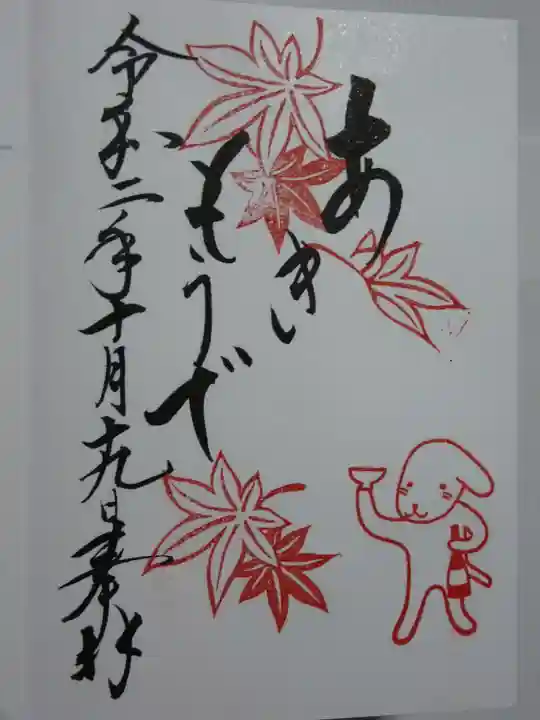 あき
もうで
令和二年十月十九日奉拝